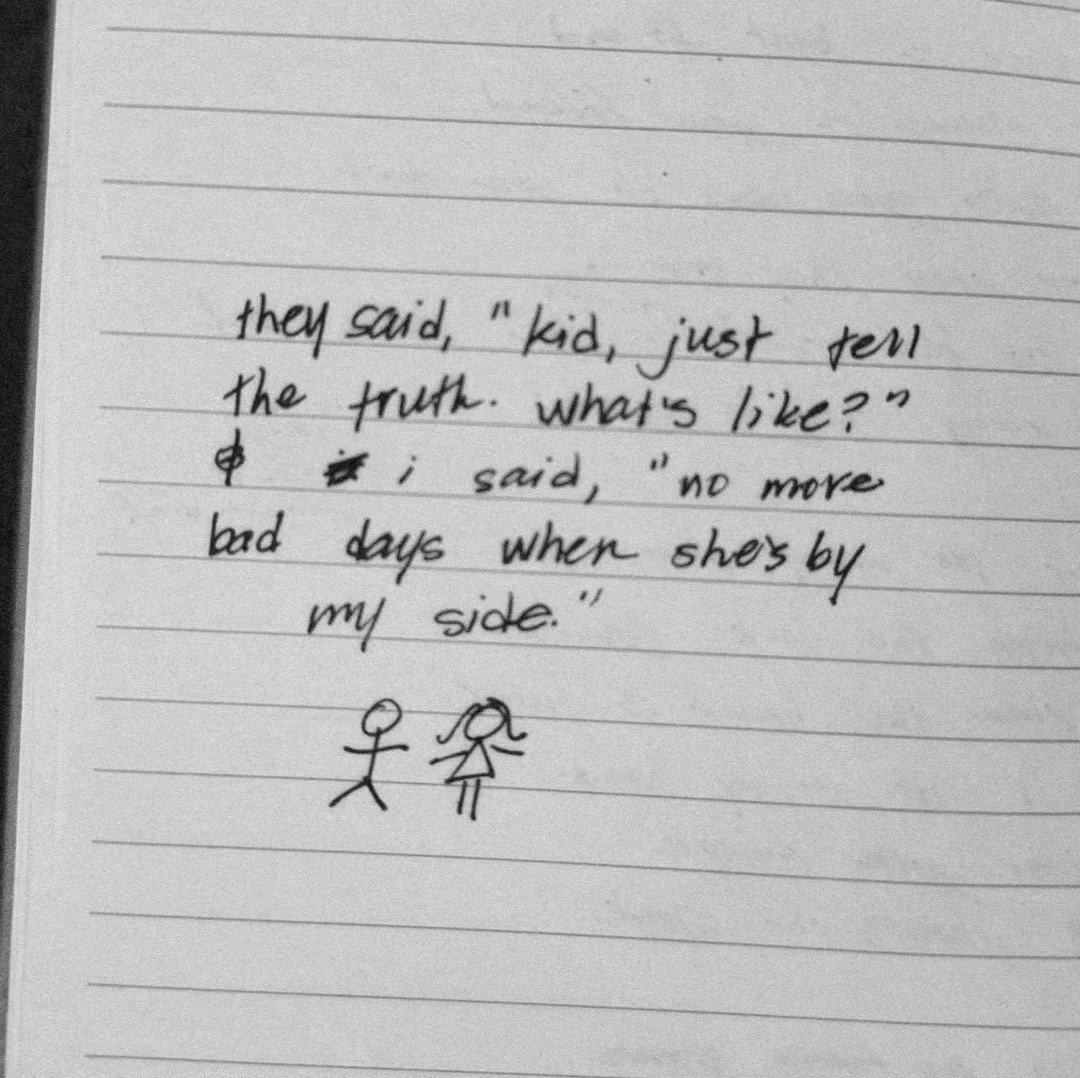 they said, "kid, just tell
the truth. what's like?"
i said, "no more
bad days when she's by
my side."